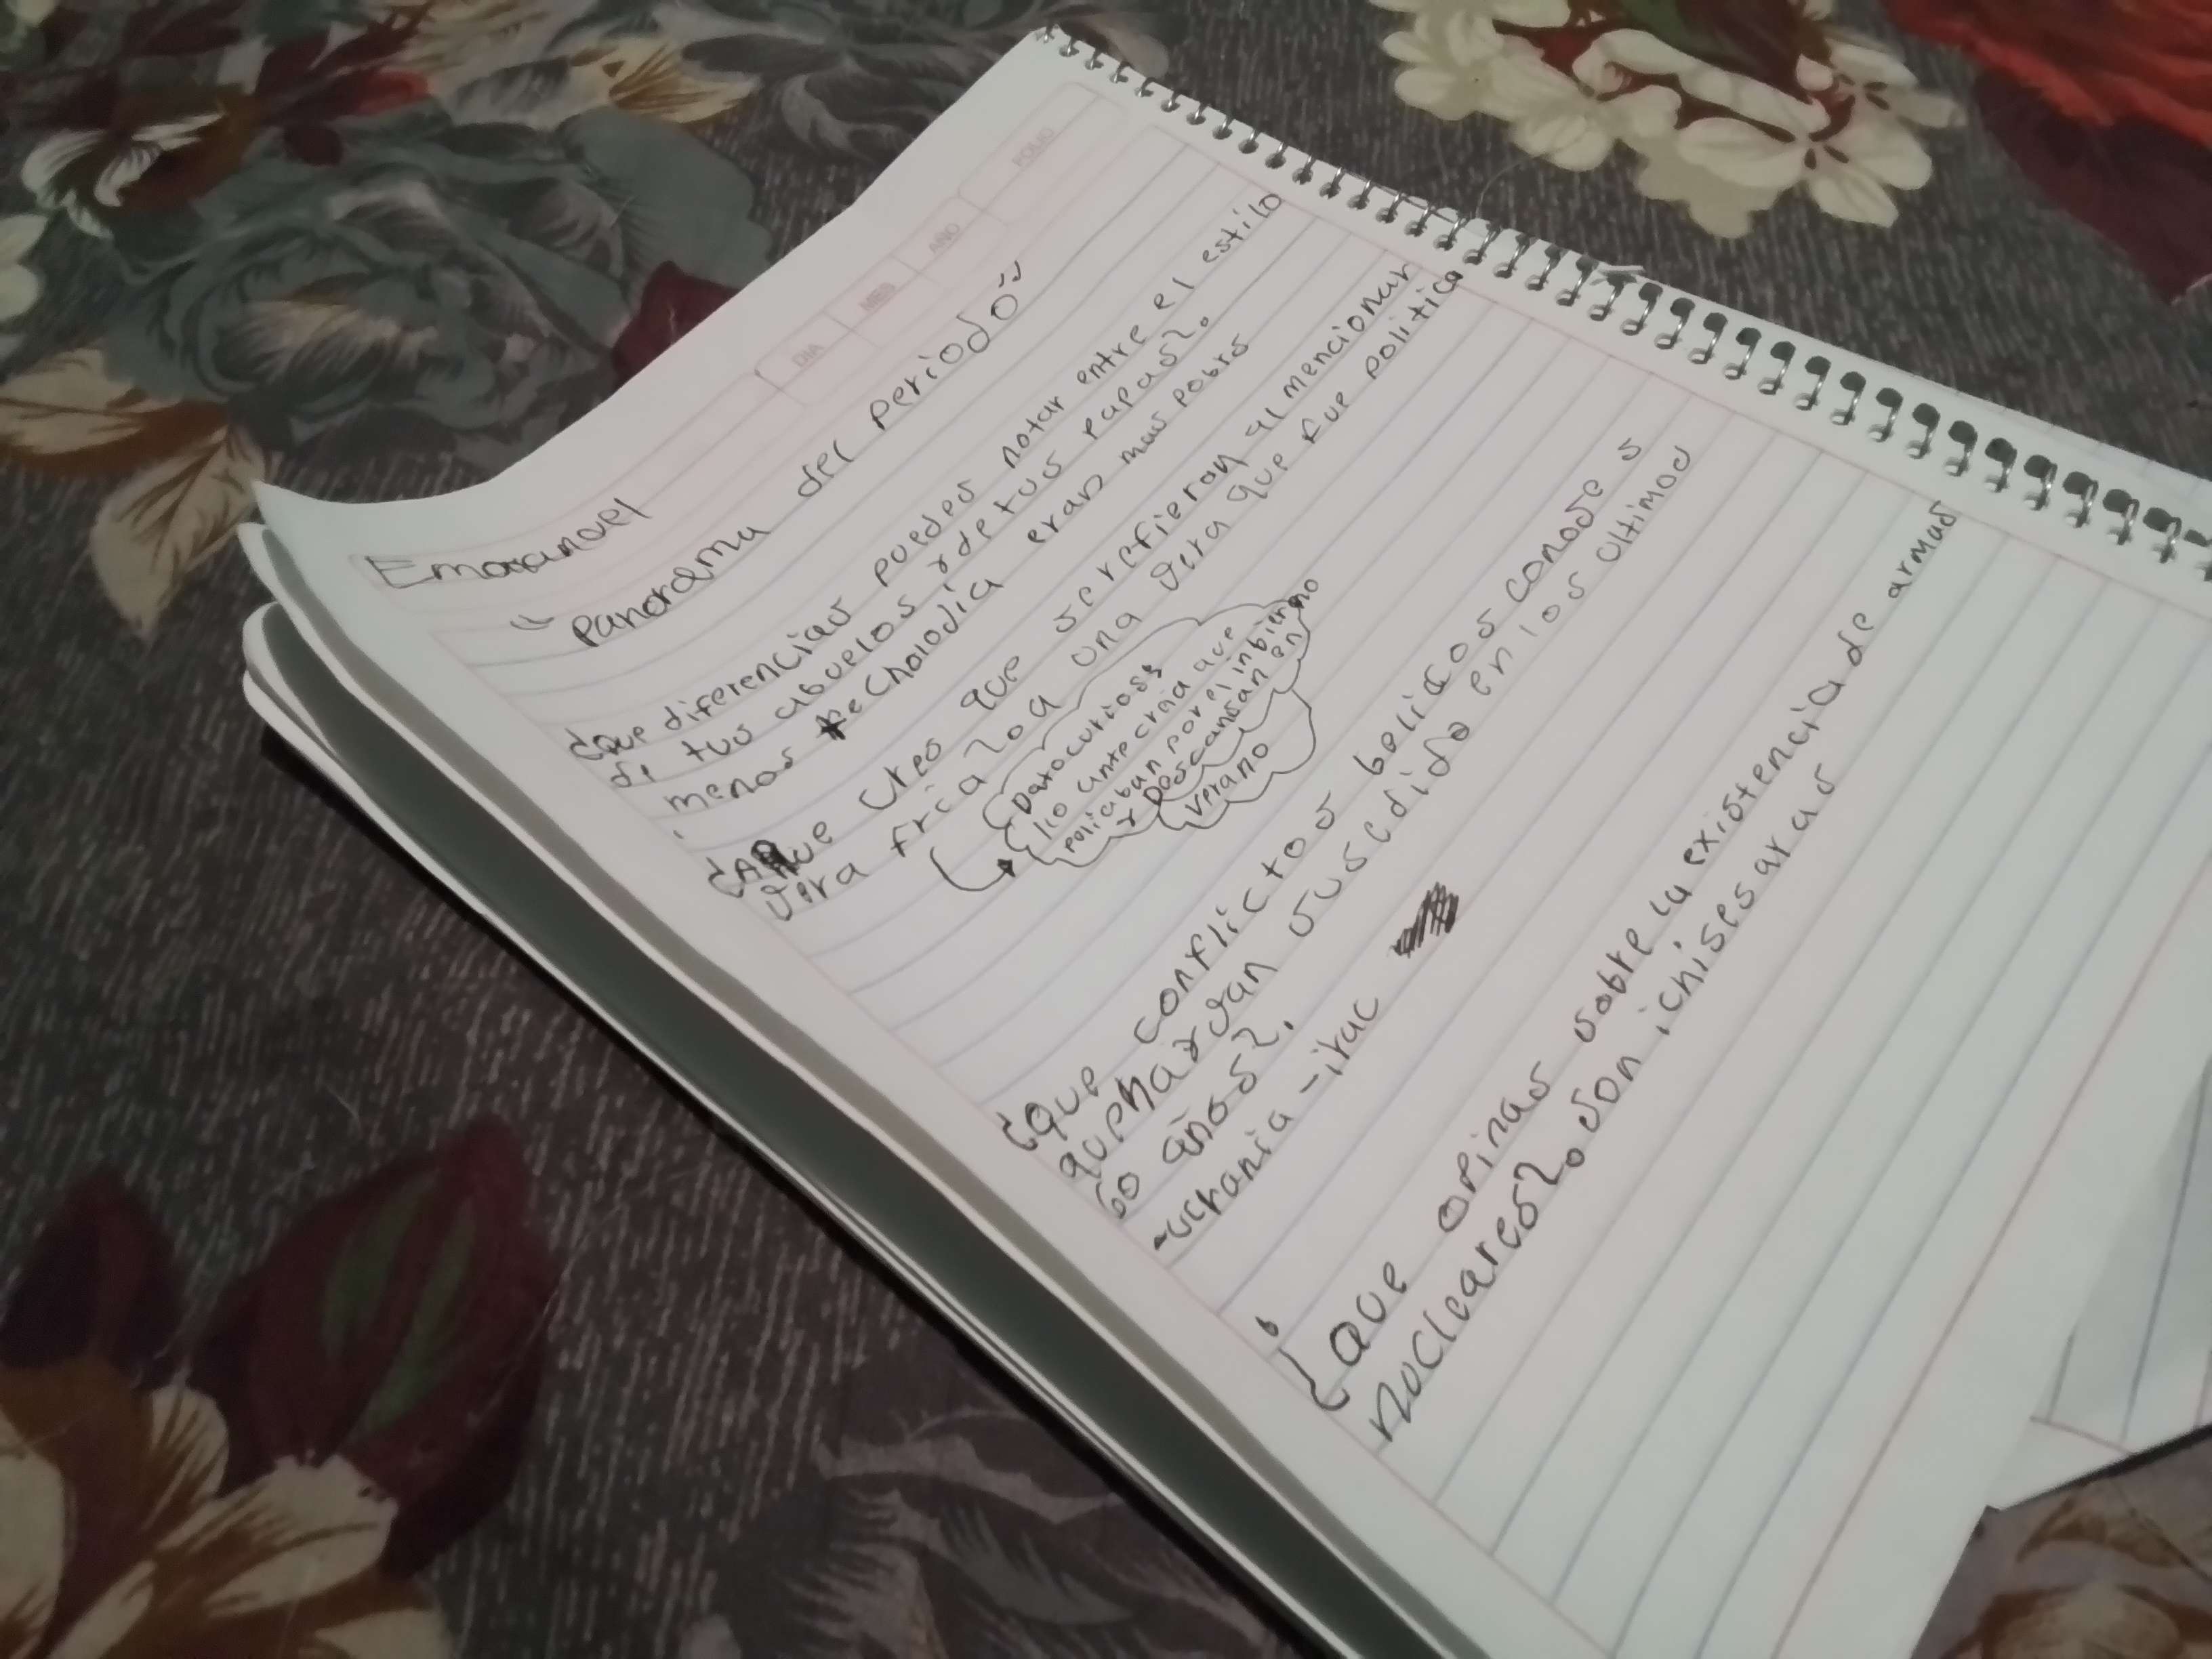 FOLIO
DIA MES AÑO
Emanuel
"Panorama del periodo"
¿que diferencias puedes notar entre el estilo
de tus abuelos y de tus papas?.
menos techalodia eran mas pobrs
¿Que crees que se refieran al mencionar
gera fria? o a una gera que fue politica
Dato curioso:
llo ante craia que
peliaban por el inbierno
y Descansaban en
verano
¿que conflictos belicos conoses
que haygan suscedido en los ultimos
60 años?.
-ucrania -irac
¿que opinas sobre la existencia de armas
nucleares?. son ichisesaras